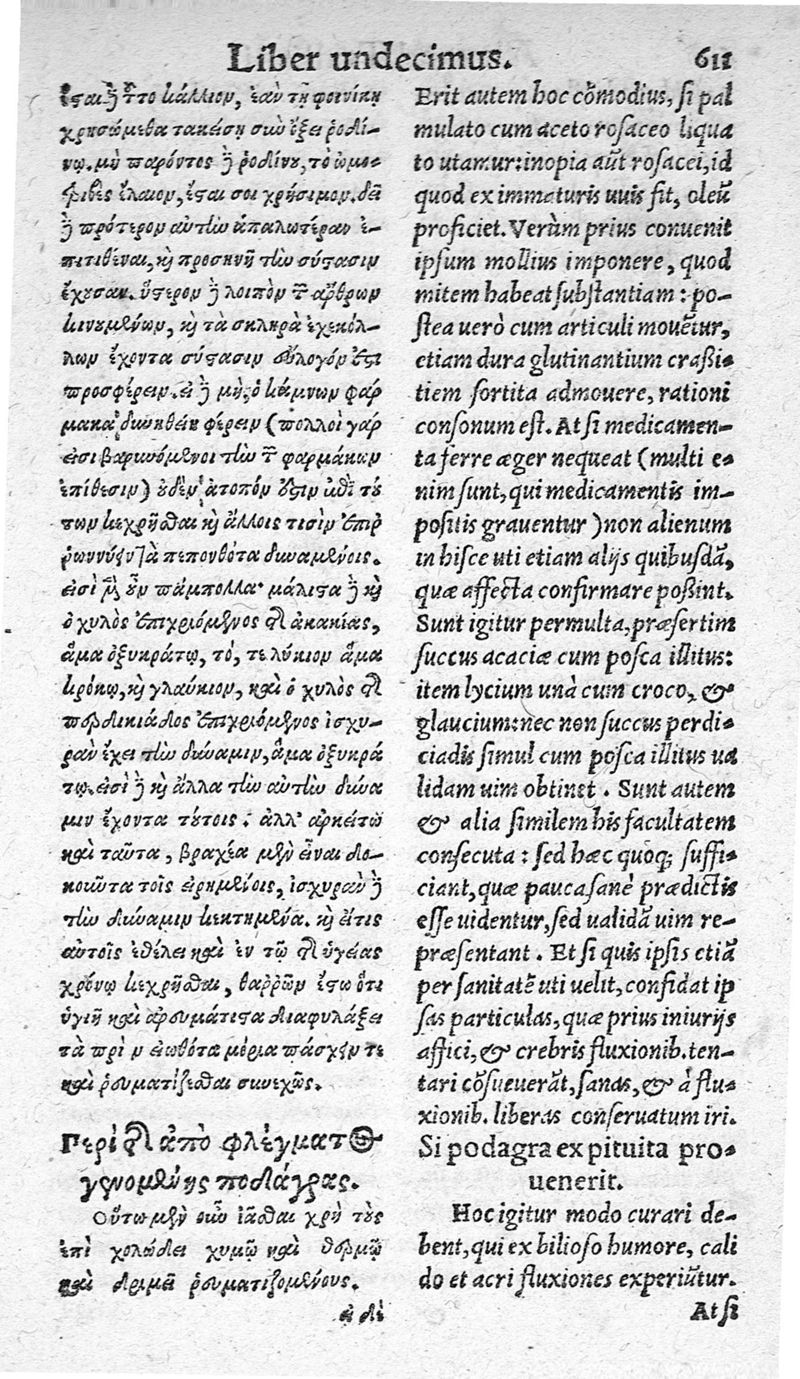 Liber undecimus. 611
ἔςαι δὲ τοῦτο κάλλιον, ἐὰν τῇ φοινίκῃ
χρησώμεθα τακείσῃ σὺν ὄξει ῥοδί-
νῳ. μὴ παρόντος δὲ ῥοδίνου, τὸ ὠμο-
τριβὲς ἔλαιον, ἔςαι σοι χρήσιμον. δεῖ
δὲ πρότερον αὐτὴν ἁπαλωτέραν ἐ-
πιτιθέναι, καὶ προσηνῆ τὴν σύςασιν
ἔχουσαν. ὕςερον δὲ λοιπὸν τῶν ἄρθρων
κινουμένων, καὶ τὰ σκληρὰ ἐχεκόλ-
λων ἔχοντα σύςασιν εὔλογόν ἐςι
προσφέρειν. εἰ δὲ μὴ ὁ κάμνων φάρ
μακα δυνηθείη φέρειν (πολλοὶ γάρ
εἰσι βαρυνόμενοι τὴν τῶν φαρμάκων
ἐπίθεσιν) οὐδὲν ἄτοπόν ἐςιν ἐπὶ τού
των κεχρῆσθαι καὶ ἄλλοις τισὶν ἐπιῤ
ῥωννύειν τὰ πεπονθότα δυναμένοις.
εἰσὶ μὲν οὖν πάμπολλα· μάλιςα δὲ καὶ
ὁ χυλὸς ἐπιχριόμενος τῆς ἀκακίας,
ἅμα ὀξυκράτῳ, τό, τε λύκιον ἅμα
κρόκῳ, καὶ γλαύκιον, καὶ ὁ χυλὸς τῆς
περδικιάδος ἐπιχριόμενος ἰσχυ-
ρὰν ἔχει τὴν δύναμιν, ἅμα ὀξυκρά
τῳ. εἰσὶ δὲ καὶ ἄλλα τὴν αὐτὴν δύνα
μιν ἔχοντα τούτοις. ἀλλ' ἀρκείτω
καὶ ταῦτα, βραχέα μὲν εἶναι δο-
κοῦντα τοῖς εἰρημένοις, ἰσχυρὰν δὲ
τὴν δύναμιν κεκτημένα. καὶ εἴτις
αὐτοῖς ἐθέλει καὶ ἐν τῷ τῆς ὑγείας
χρόνῳ κεχρῆσθαι, θαῤῥῶν ἔςω ὅτι
ὑγιῆ καὶ ἀρευμάτιςα διαφυλάξει
τὰ πρὶν εἰωθότα μόρια πάσχειν τε
καὶ ῥευματίζεσθαι συνεχῶς.
Περὶ τῆς ἀπὸ φλέγματος
γενομένης ποδάγρας.
Οὕτω μὲν οὖν ἰᾶσθαι χρὴ τοὺς
ἐπὶ χολώδει χυμῷ καὶ θερμῷ
καὶ δριμεῖ ῥευματιζομένους.
εἰ δὲ
Erit autem hoc cõmodius, si pal
mulato cum aceto rosaceo liqua
to utamur: inopia aũt rosacei, id
quod ex immaturis uuis fit, oleũ
proficiet. Verùm prius conuenit
ipsum mollius imponere, quod
mitem habeat substantiam: po-
stea uerò cum articuli mouẽtur,
etiam dura glutinantium crassi-
tiem sortita admouere, rationi
consonum est. At si medicamen-
ta ferre æger nequeat (multi e-
nim sunt, qui medicamentis im-
positis grauentur) non alienum
in hisce uti etiam alijs quibusdã,
quæ affecta confirmare possint.
Sunt igitur permulta, præsertim
succus acaciæ cum posca illitus:
item lycium unà cum croco, &
glaucium: nec non succus perdi-
ciadis simul cum posca illitus ua
lidam uim obtinet. Sunt autem
& alia similem his facultatem
consecuta: sed hæc quoq; suffi-
ciant, quæ pauca sanè prædictis
esse uidentur, sed ualidã uim re-
præsentant. Et si quis ipsis etiã
per sanitatẽ uti uelit, confidat ip
sas particulas, quæ prius iniurijs
affici, & crebris fluxionib. ten-
tari cõsueuerãt, sanas, & à flu-
xionib. liberas conseruatum iri.
Si podagra ex pituita pro-
uenerit.
Hoc igitur modo curari de-
bent, qui ex bilioso humore, cali
do et acri fluxiones experiũtur.
At si